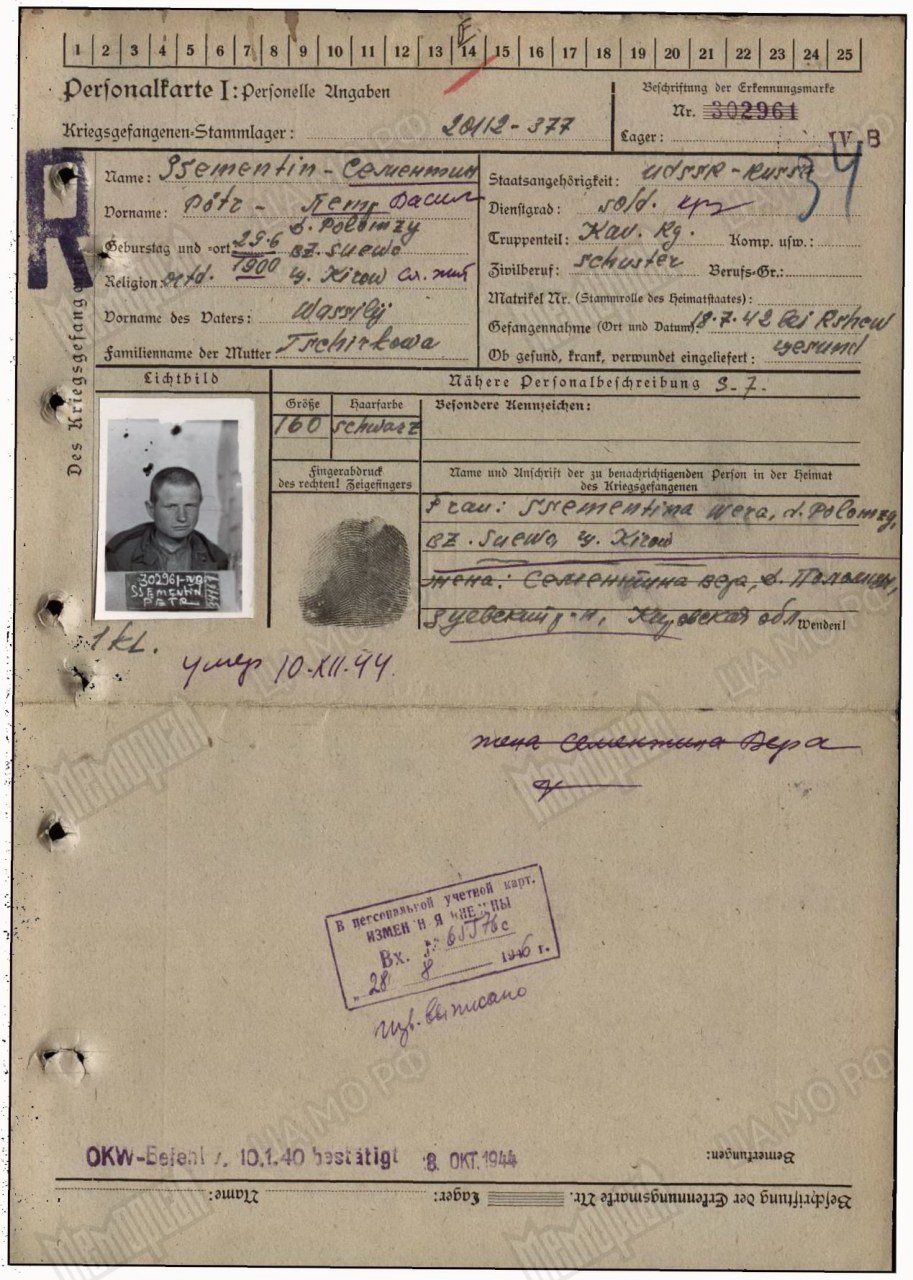 1 2 3 4 5 6 7 8 9 10 11 12 13 14 15 16 17 18 19 20 21 22 23 24 25
Personalkarte I: Personelle Angaben
Kriegsgefangenen-Stammlager: 20112-377
Beschriftung der Erkennungsmarke
Nr. 302961
Lager: IV B
34
R
Des Kriegsgefang
Name: Ssementin - Сементин
Vorname: Pötr - Петр Васил
Geburstag und -ort 29.6 1900 d. Polomzy
bz. Suewo
Religion: ortd. g. Kirow
Vorname des Vaters: Wassilij
Familienname der Mutter: Tschirkowa
Staatsangehörigkeit: UdSSR - Russe
Dienstgrad: sold. кр
Truppenteil: Kav. Rg. Komp. usw.:
Zivilberuf: schuster Berufs-Gr.:
Matrikel Nr. (Stammrolle des Heimatstaates):
Gefangennahme (Ort und Datum): 18.7.42 bei Rshew
Ob gesund, krank, verwundet eingeliefert: gesund
Lichtbild
Nähere Personalbeschreibung S-7.
Größe Haarfarbe Besondere Kennzeichen:
160 schwarz
Fingerabdruck
des rechten! Zeigefingers
Name und Anschrift der zu benachrichtigenden Person in der Heimat
des Kriegsgefangenen
Frau: Ssementina Wera, d. Polomzy,
bz. Suewo, g. Kirow
жена: Сементина Вера, д. Поломцы,
Зуевский р-н, Кировская обл
Wenden!
302961-IVB
SSEMENTIN
PÄTR
1 kl.
умер 10-XII-44.
жена Сементина Вера
В персональной учетной карт.
ИЗМЕНЕНИЯ ВНЕСЕНЫ
Вх.
„28 8 1946 г.
изв. выписано
OKW-Befehl v. 10.1.40 bestätigt 8. OKT. 1944
Bemerkungen:
Beschriftung der Erkennungsmarke Nr. Lager: Name:
Мемориал
ЦАМО РФ